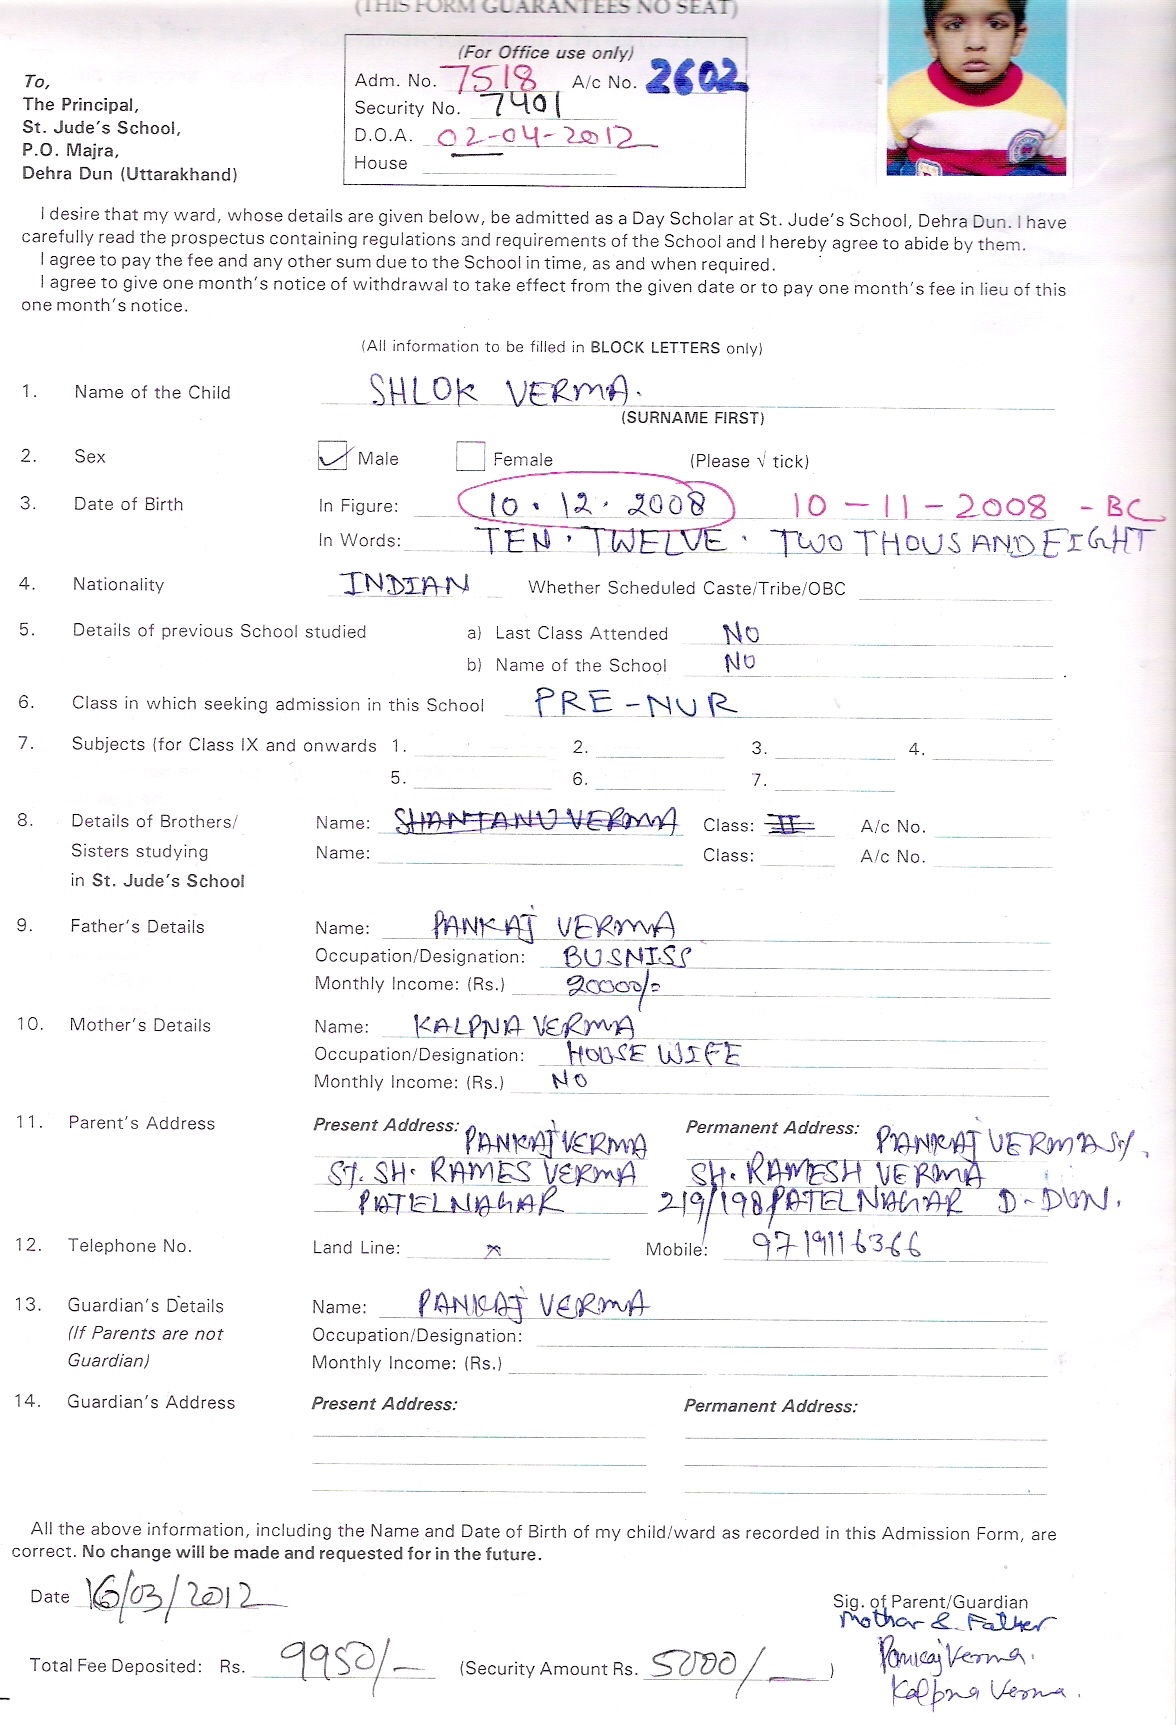 (THIS FORM GUARANTEES NO SEAT)
(For Office use only)
Adm. No. 7518 A/c No. 2602
Security No. 7401
D.O.A. 02-04-2012
House
To,
The Principal,
St. Jude's School,
P.O. Majra,
Dehra Dun (Uttarakhand)
I desire that my ward, whose details are given below, be admitted as a Day Scholar at St. Jude's School, Dehra Dun. I have
carefully read the prospectus containing regulations and requirements of the School and I hereby agree to abide by them.
I agree to pay the fee and any other sum due to the School in time, as and when required.
I agree to give one month's notice of withdrawal to take effect from the given date or to pay one month's fee in lieu of this
one month's notice.
(All information to be filled in BLOCK LETTERS only)
1. Name of the Child SHLOK VERMA.
(SURNAME FIRST)
2. Sex Male Female (Please √ tick)
3. Date of Birth In Figure: 10.12.2008 10-11-2008 - BC
In Words: TEN. TWELVE. TWO THOUSAND EIGHT
4. Nationality INDIAN Whether Scheduled Caste/Tribe/OBC
5. Details of previous School studied a) Last Class Attended NO
b) Name of the School NO
6. Class in which seeking admission in this School PRE-NUR
7. Subjects (for Class IX and onwards 1. 2. 3. 4.
5. 6. 7.
8. Details of Brothers/ Name: SHANTANU VERMA Class: II A/c No.
Sisters studying Name: Class: A/c No.
in St. Jude's School
9. Father's Details Name: PANKAJ VERMA
Occupation/Designation: BUSNISS
Monthly Income: (Rs.) 20000/=
10. Mother's Details Name: KALPNA VERMA
Occupation/Designation: HOUSE WIFE
Monthly Income: (Rs.) NO
11. Parent's Address Present Address: PANKAJ VERMA Permanent Address: PANKAJ VERMA S/.
S/. SH. RAMES VERMA SH. RAMESH VERMA
PATELNAGAR 219/198 PATELNAGAR D-DUN.
12. Telephone No. Land Line: x Mobile: 9719116366
13. Guardian's Details Name: PANKAJ VERMA
(If Parents are not Occupation/Designation:
Guardian) Monthly Income: (Rs.)
14. Guardian's Address Present Address: Permanent Address:
All the above information, including the Name and Date of Birth of my child/ward as recorded in this Admission Form, are
correct. No change will be made and requested for in the future.
Date 16/03/2012
Sig. of Parent/Guardian
Mothar & Father
Total Fee Deposited: Rs. 9950/- (Security Amount Rs. 5000/- )
Pankaj Verma.
Kalpna Verma.